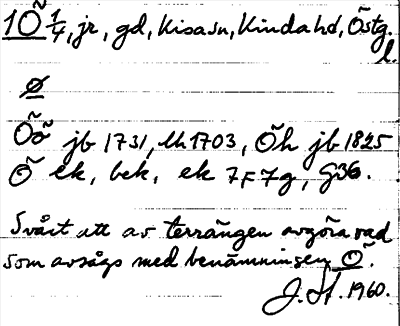 1Õ 1/4, jr, gd, Kisasn, Kindahd, Östg
l.
Ø
Õõ jb 1731, lh 1703, Õh jb 1825
Õ ek, bek, ek 7F7g, G36.
Svårt att av terrängen avgöra vad
som avsågs med benämningen Õ.
J. St. 1960.